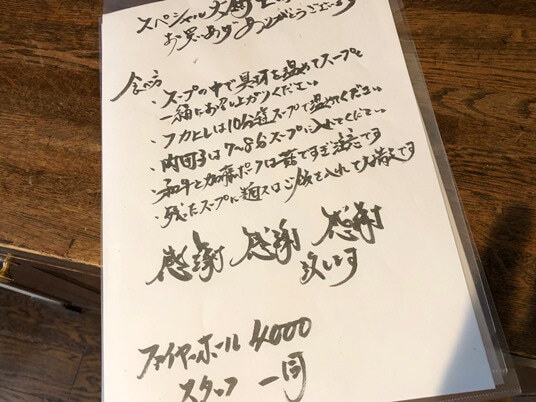 スペシャル大
お買いあげありがとうございます
食べ方
・スープの中で具材を温めてスープと
一緒にお召し上がりください
・フカヒレは10分程スープで温めてください
・肉団子は7〜8分スープに入れてください
・和牛と加藤ポークは茹ですぎ注意です
・残ったスープに麺又はご飯を入れても満足です
感謝 感謝 感謝
致します
ファイヤーホール 4000
スタッフ 一同